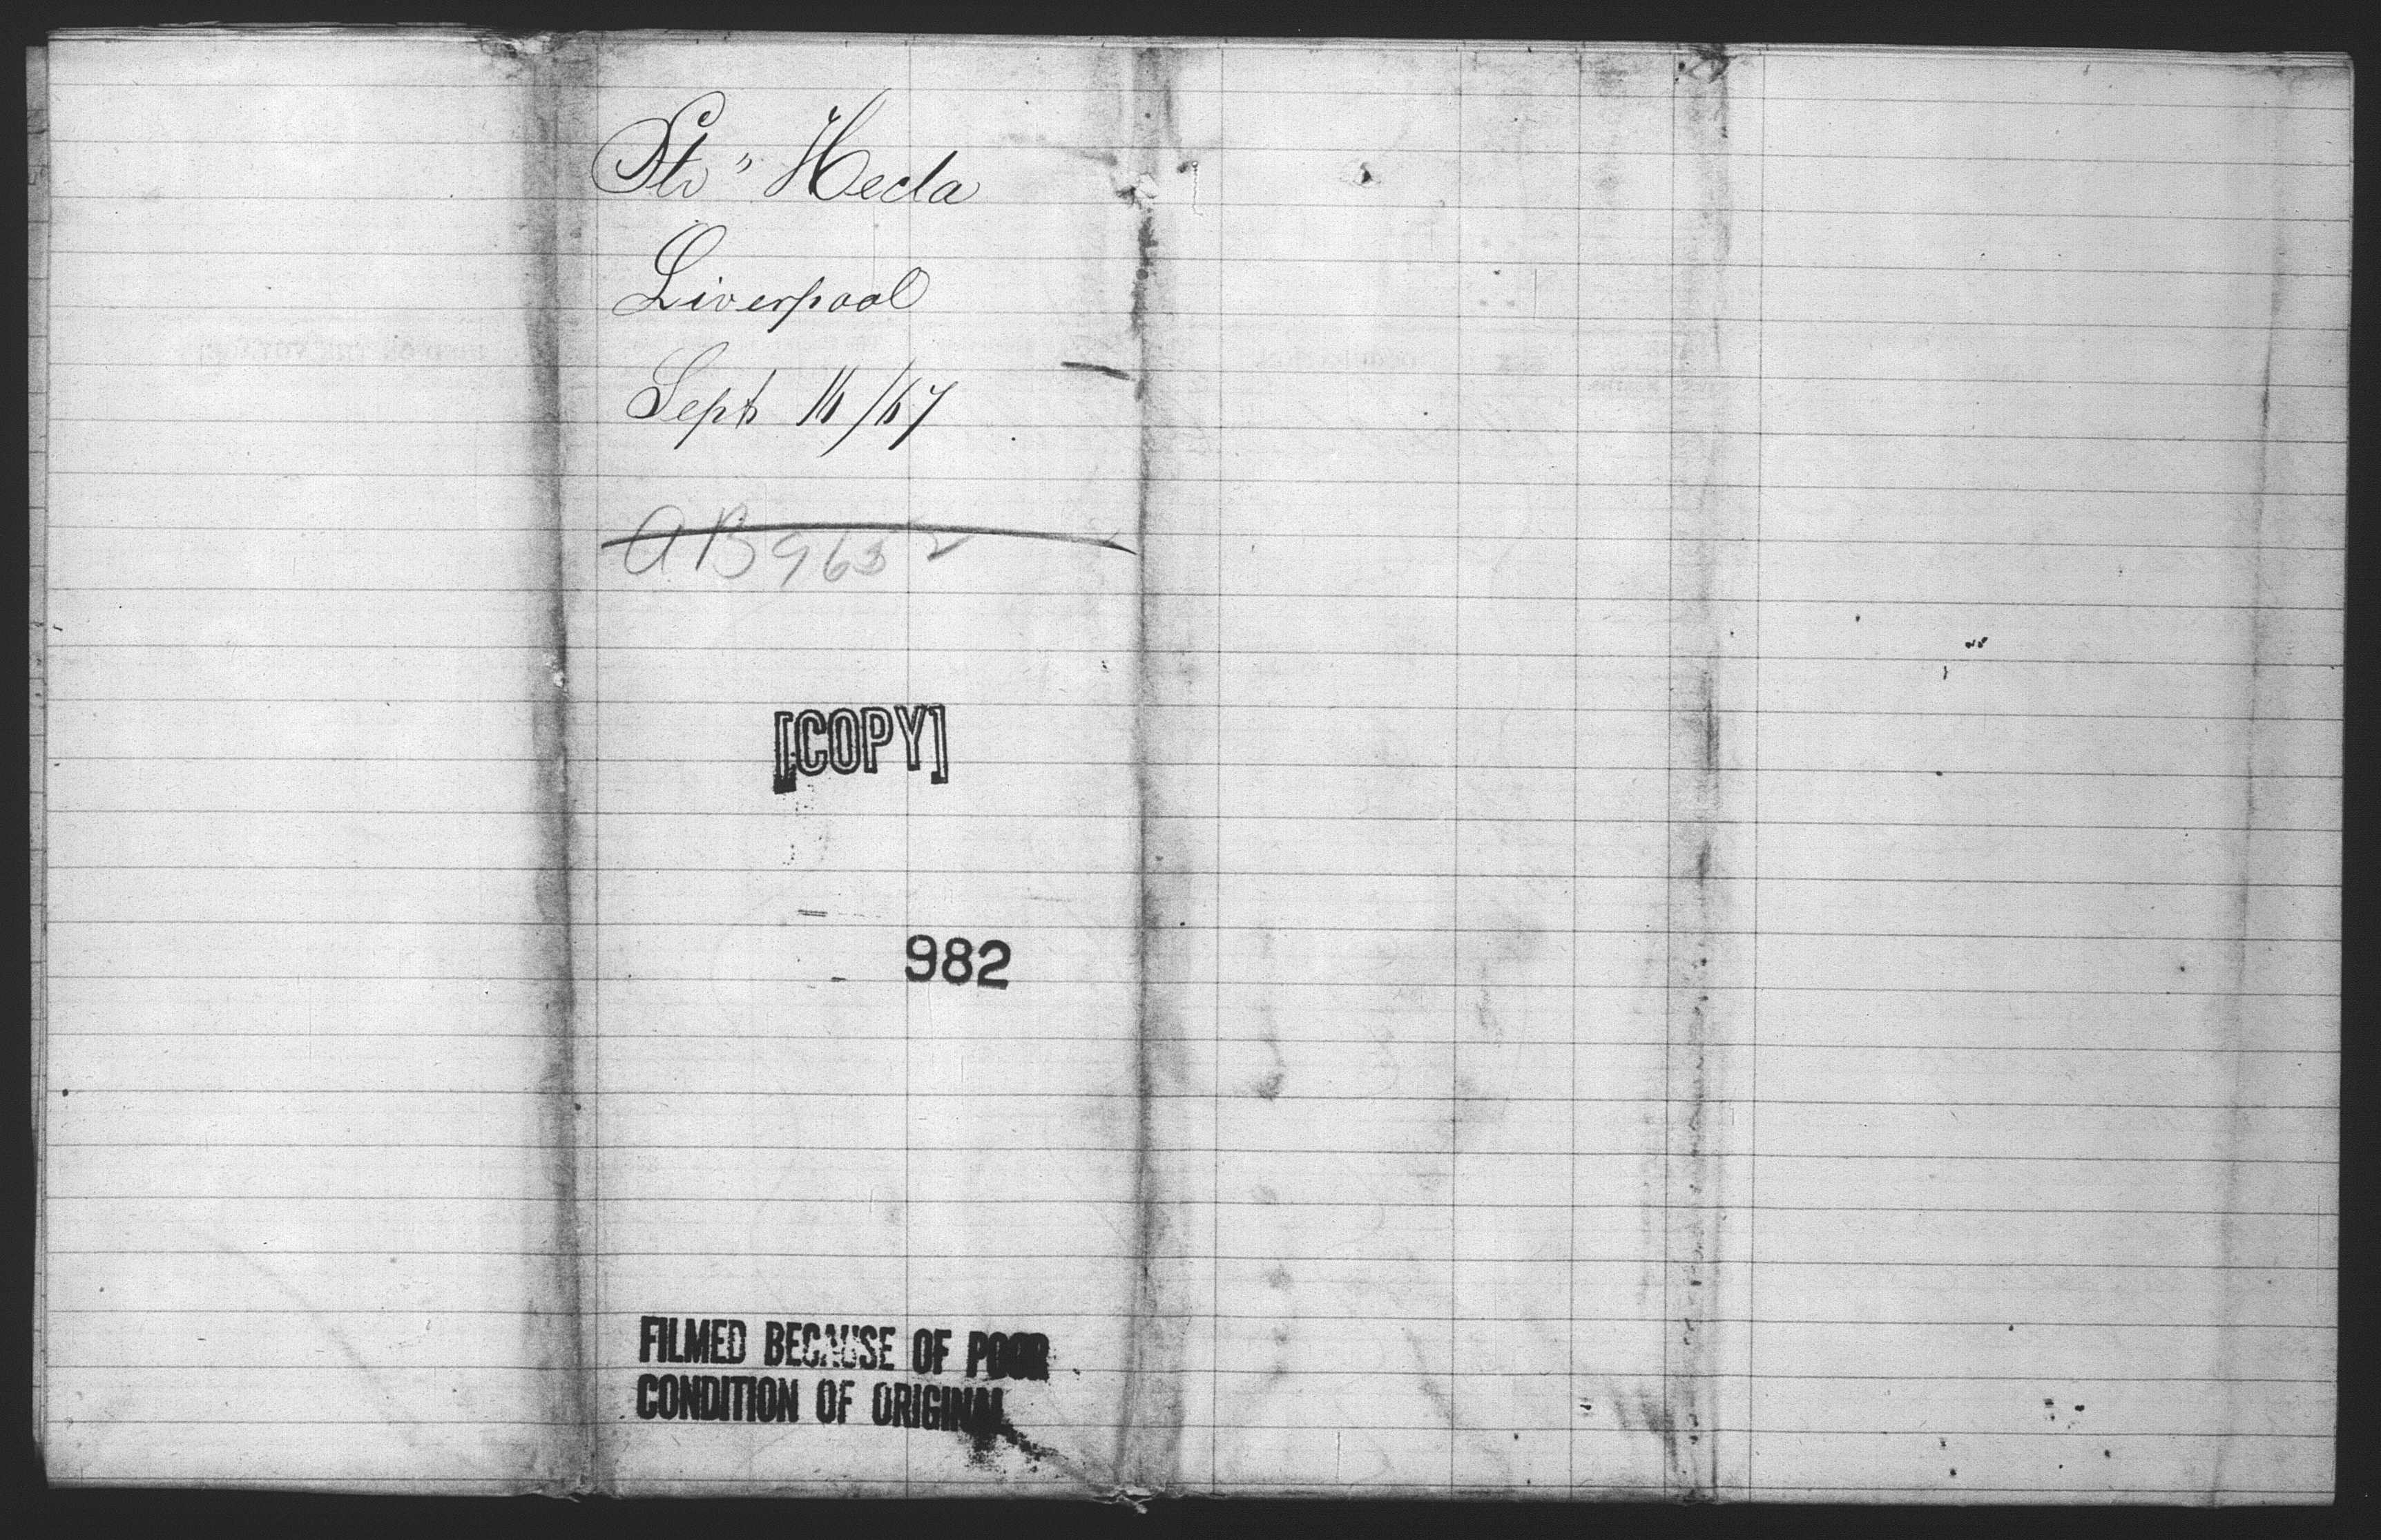 Str " Hecla
Liverpool
Sept 16/67
AB 9652
[COPY]
982
FILMED BECAUSE OF POOR
CONDITION OF ORIGINAL